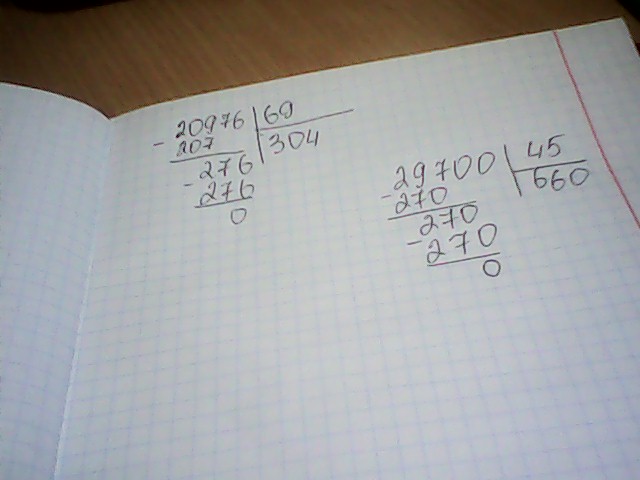 - 20976 | 69
207 | 304
- 276
276
0
- 29700 | 45
270 | 660
- 270
270
0